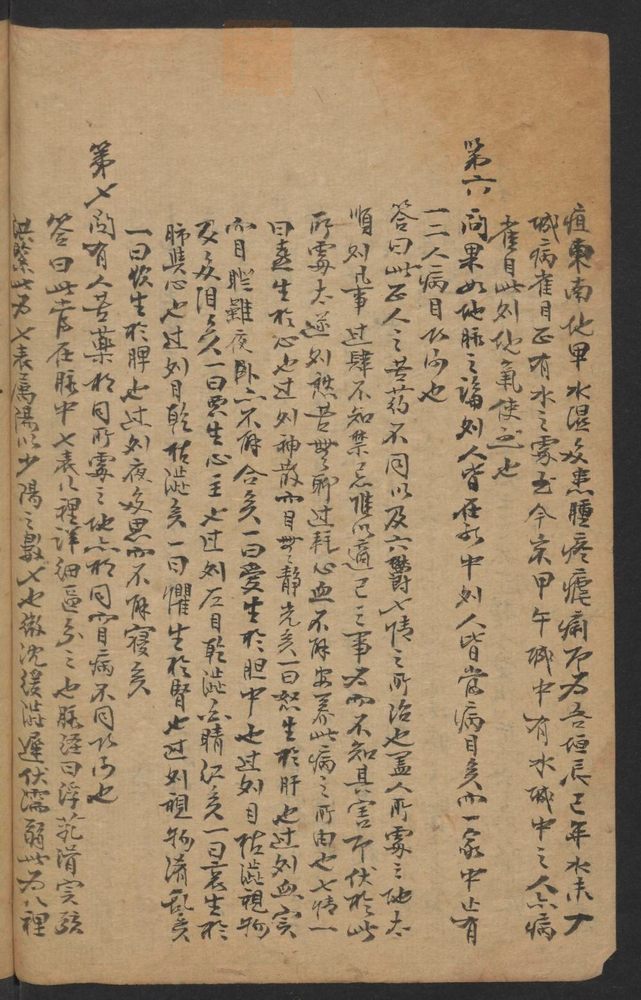 疽東南地卑水濕多患腫疼瘧痢即为吾垣辰巳年水未入
城病雀目正有水之處至今京甲午城中有水城中之人亦病
雀目此則地氣使然也
第六問果如地脈之論則人皆在於中則人皆當病目矣而一家中止有
一二人病目政何也
答曰此正人之苦药不同以及六鬱七情之所治也盖人所處之地太
順則凡事过肆不知禁忌惟以適己之事为而不知其害即伏於此
所處太逆則愁苦無聊过耗心血不能安养此病之所由也七情一
曰喜生於心也过則神散而目無静光矣一曰怒生於肝也过則血實
而目眦雖夜卧亦不能合矣一曰爱生於胆中也过則目枯澁視物
又多泪矣一曰思生心主也过則左目乾澁六睛红矣一曰哀生於
肺與心也过則目乾枯澁矣一曰懼生於腎也过則視物渚乱矣
一曰欲生於脾也过則夜多思而不能寝矣
第七問有人苦藥於同所處之地亦於同官目病不同政何也
答曰此當在脈中七表八裡詳細區分之也脈经曰浮芤滑实弦
洪緊此为七表属陽以少陽之數七也微沈缓澁遲伏濡弱此为八裡